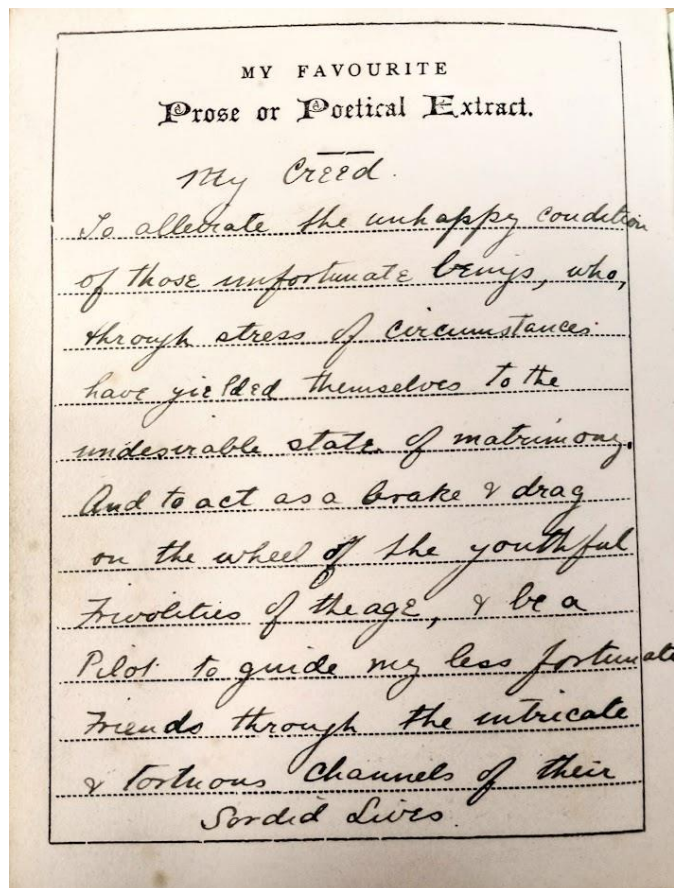 MY FAVOURITE
Prose or Poetical Extract.
My Creed.
To alleviate the unhappy condition
of those unfortunate beings, who,
through stress of circumstances
have yielded themselves to the
undesirable state of matrimony.
And to act as a brake & drag
on the wheel of the youthful
Frivolities of the age, & be a
Pilot to guide my less fortunate
Friends through the intricate
& tortuous channels of their
Sordid Lives.